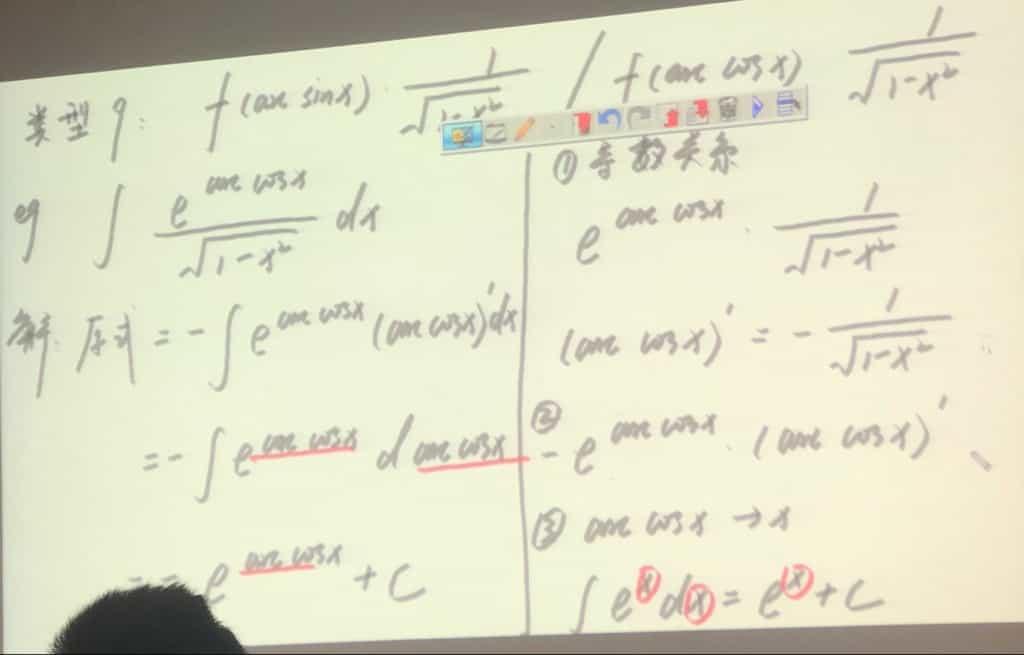 类型9: f(arc sinx) · 1/√(1-x²) / f(arc cosx) 1/√(1-x²)
eg ∫ e^(arc cosx)/√(1-x²) dx
解: 原式 = -∫ e^(arc cosx) (arc cosx)' dx
= -∫ e^(arc cosx) d arc cosx
= - e^(arc cosx) + C
① 导数关系
e^(arc cosx) · 1/√(1-x²)
(arc cosx)' = - 1/√(1-x²)
② - e^(arc cosx) · (arc cosx)'
③ arc cosx → x
∫ e^x dx = e^x + C